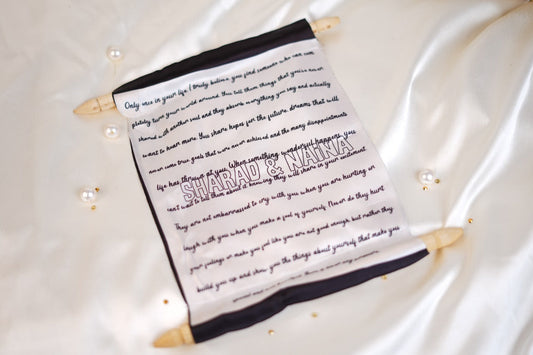 Only once in your life, I truly believe, you find someone who can com
pletely turn your world around. You tell them things that you've never
shared with another soul and they absorb everything you say and actually
want to hear more. You share hopes for the future, dreams that will
never come true, goals that were never achieved and the many disappointments
life has thrown at you. When something wonderful happens, you
SHARAD & NAINA
can't wait to tell them about it, knowing they will share in your excitement.
They are not embarrassed to cry with you when you are hurting or
laugh with you when you make a fool of yourself. Never do they hurt
your feelings or make you feel like you are not good enough, but rather they
build you up and show you the things about yourself that make you